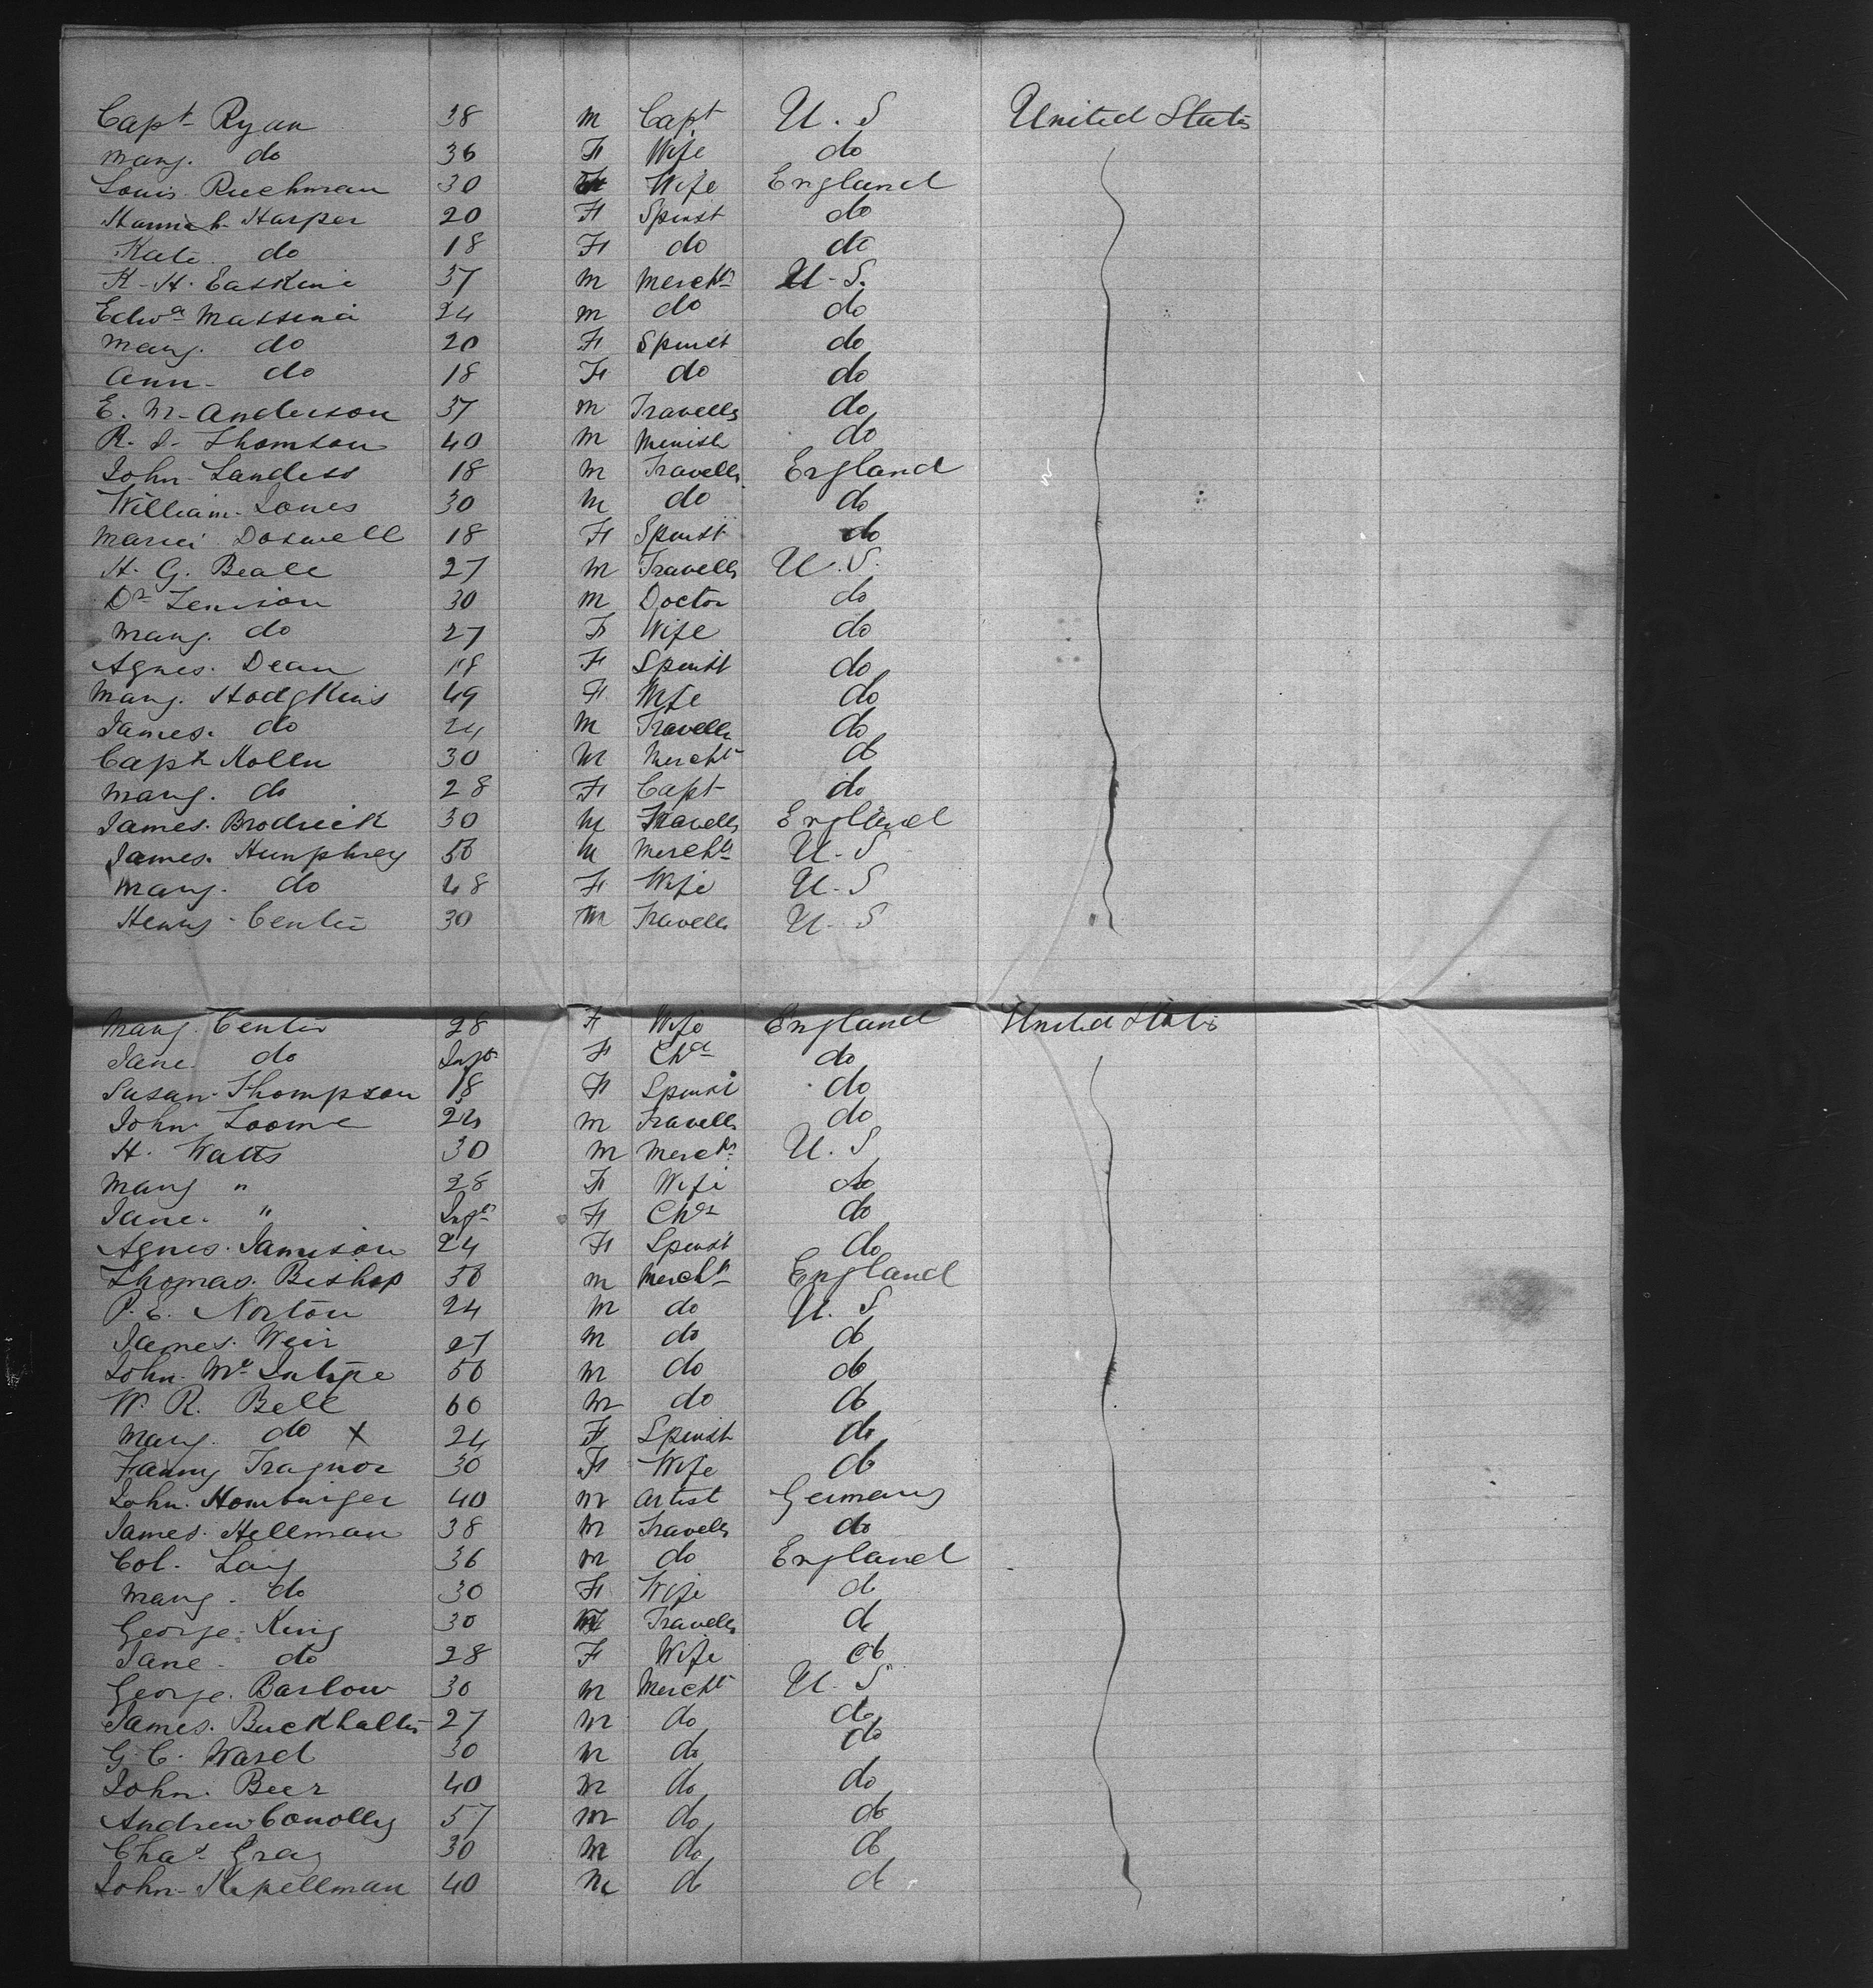 Capt Ryan 38 M Capt U. S United States
Mary. do 36 F Wife do
Louis Ruchman 30 Wife England
Hannah Harper 20 F Spinst do
Kate. do 18 F do do
K. H. Easkine 37 M Mercht U. S.
Edwd Massena 24 M do do
Mary. do 20 F Spinst do
Ann - do 18 F do do
E. M. Anderson 37 M Travellr do
R. D. Thomson 40 M Ministr do
John Landess 18 M Travellr England
William. Jones 30 M do do
Maria Doswell 18 F Spinst do
H. G. Beale 27 M Travellr U. S.
Dr Tenison 30 M Doctor do
Mary. do 27 F Wife do
Agnes. Dean 18 F Spinst do
Mary. Hodgkins 49 F Wife do
James. do 24 M Travellr do
Capt Mollu 30 M Mercht do
Mary. do 28 F Capt do
James. Brodrick 30 M Travellr England
James. Humphrey 50 M Mercht U. S
Mary. do 48 F Wife U. S
Henry. Center 30 M Travellr U. S
Mary. Center 28 F Wife England United States
Jane. do Inft F Chd do
Susan. Thompson 18 F Spinst do
John Loome 24 M Travellr do
H. Watts 30 M Mercht U. S
Mary " 28 F Wife do
Jane. " Inft F Chd do
Agnes. Jamison 24 F Spinst do
Thomas. Bishop 50 M Mercht England
P. E. Norton 24 M do U. S
James. Weir 27 M do do
John. Mc Intype 50 M do do
W. R. Bell 60 M do do
Mary. do X 24 F Spinst do
Fanny Traynor 30 F Wife do
John. Homburger 40 M Artist Germany
James. Hellman 38 M Travellr do
Col. Lay 36 M do England
Mary. do 30 F Wife do
George. King 30 M Travellr do
Jane. do 28 F Wife do
George. Barlow 30 M Mercht U. S
James. Buckhalter 27 M do do
G. C. Ward 30 M do do
John. Beer 40 M do do
Andrew Conolly 57 M do do
Chas Gray 30 M do do
John. Kepellman 40 M do do